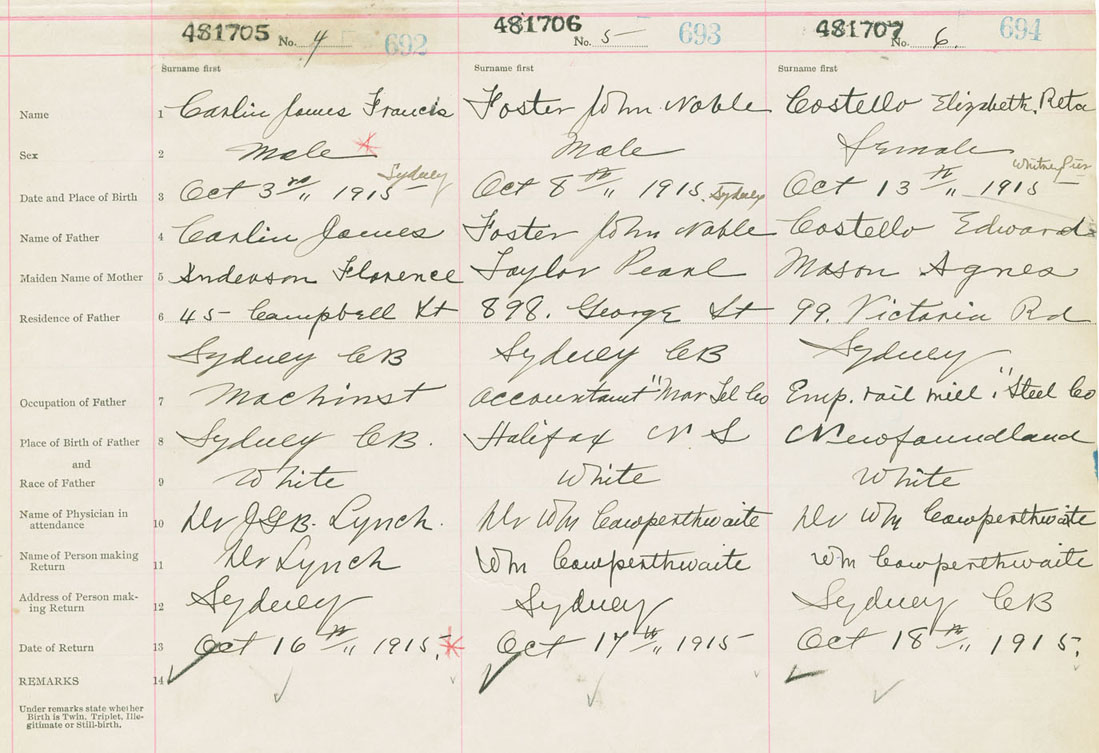 481705 No. 4 692 481706 No. 5 693 481707 No. 6 694
Surname first Surname first Surname first
Name 1 Carlin James Francis Foster John Noble Costello Elizabeth. Reta
Sex 2 Male Male Female
Sydney Whitney Pier
Date and Place of Birth 3 Oct 3rd 1915 Oct 8th 1915. Sydney Oct 13th 1915
Name of Father 4 Carlin James Foster John Noble Costello Edward
Maiden Name of Mother 5 Anderson Florence Taylor Pearl Mason Agnes
Residence of Father 6 45 Campbell St 898. George St 99. Victoria Rd
Sydney CB Sydney CB Sydney
Occupation of Father 7 Machinst Accountant "Mar Tel Co Emp. rail mill "Steel Co
Place of Birth of Father 8 Sydney CB. Halifax N S Newfoundland
and
Race of Father 9 White White White
Name of Physician in
attendance 10 Dr J.G.B. Lynch. Dr Wm Cowperthwaite Dr Wm Cowperthwaite
Name of Person making
Return 11 Dr Lynch Wm Cowperthwaite Wm Cowperthwaite
Address of Person mak-
ing Return 12 Sydney Sydney Sydney CB
Date of Return 13 Oct 16th 1915. Oct 17th 1915 Oct 18th 1915.
REMARKS 14
Under remarks state whether
Birth is Twin, Triplet, Ille-
gitimate or Still-birth.